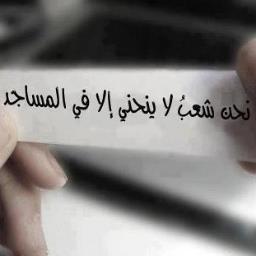 نحن شعبُ لا ينحني إلا في المساجد